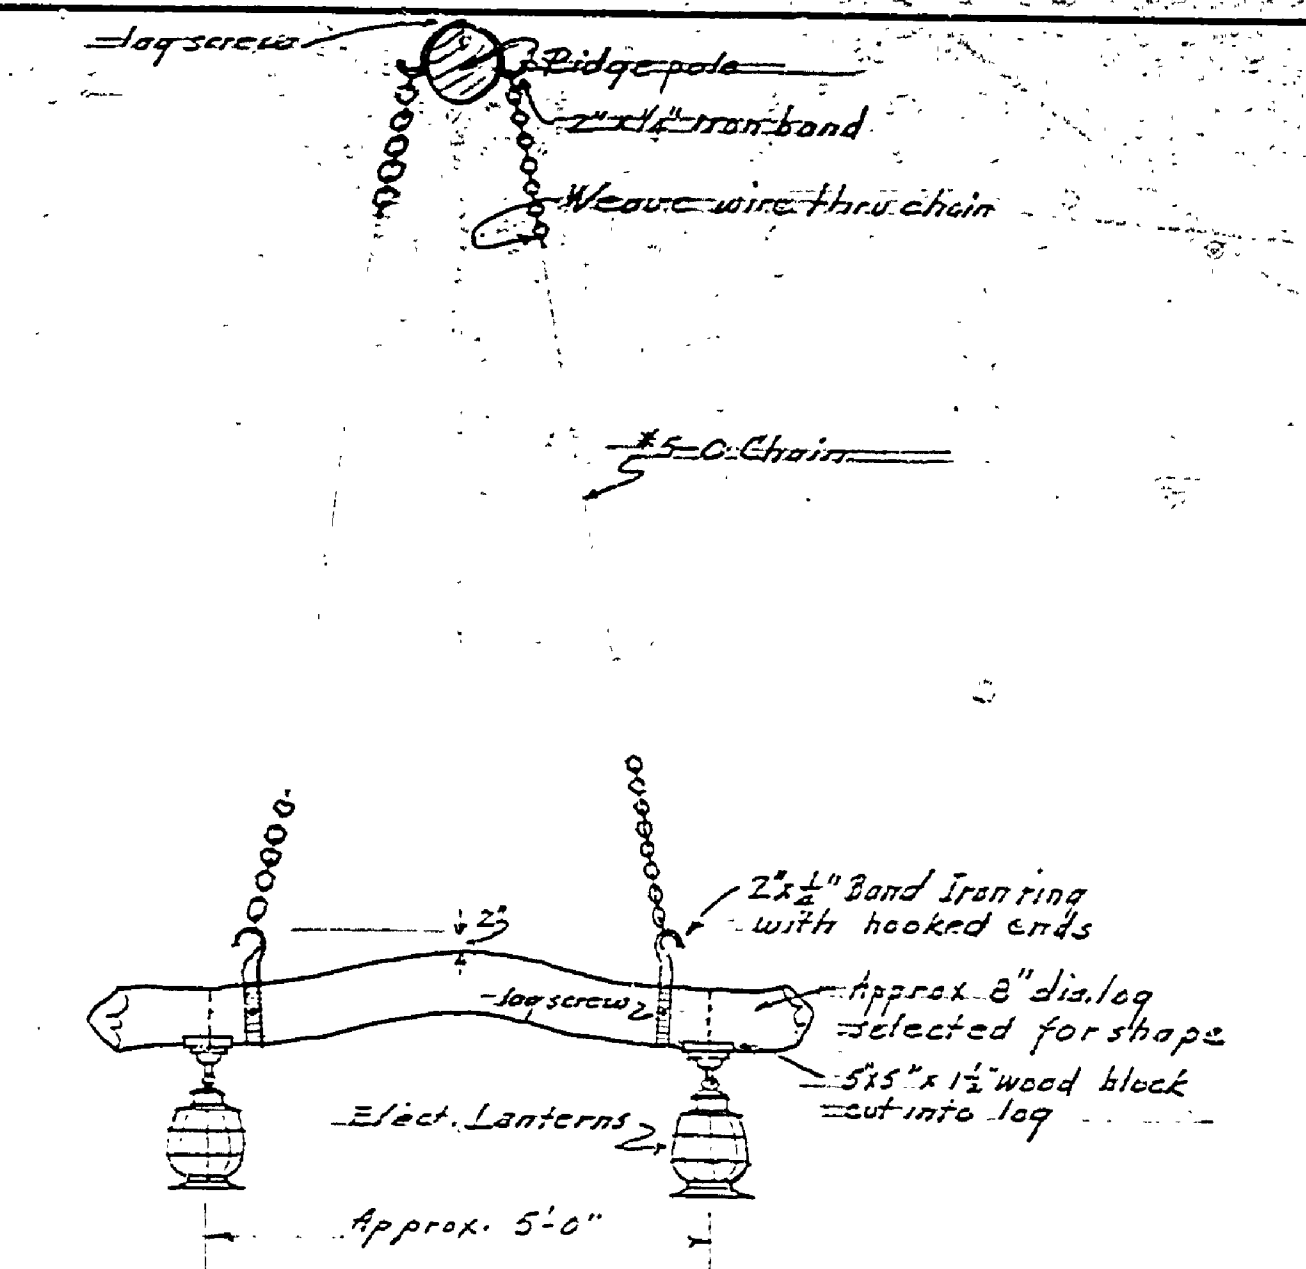 lag screw
Ridge pole
2" x 1/4" iron band
Weave wire thru chain
#5-0 Chain
2" x 1/4" Band Iron ring
with hooked ends
2"
lag screw
Approx 8" dia. log
selected for shape
5"x5"x 1 1/2" wood block
cut into log
Elect. Lanterns
Approx. 5'-0"